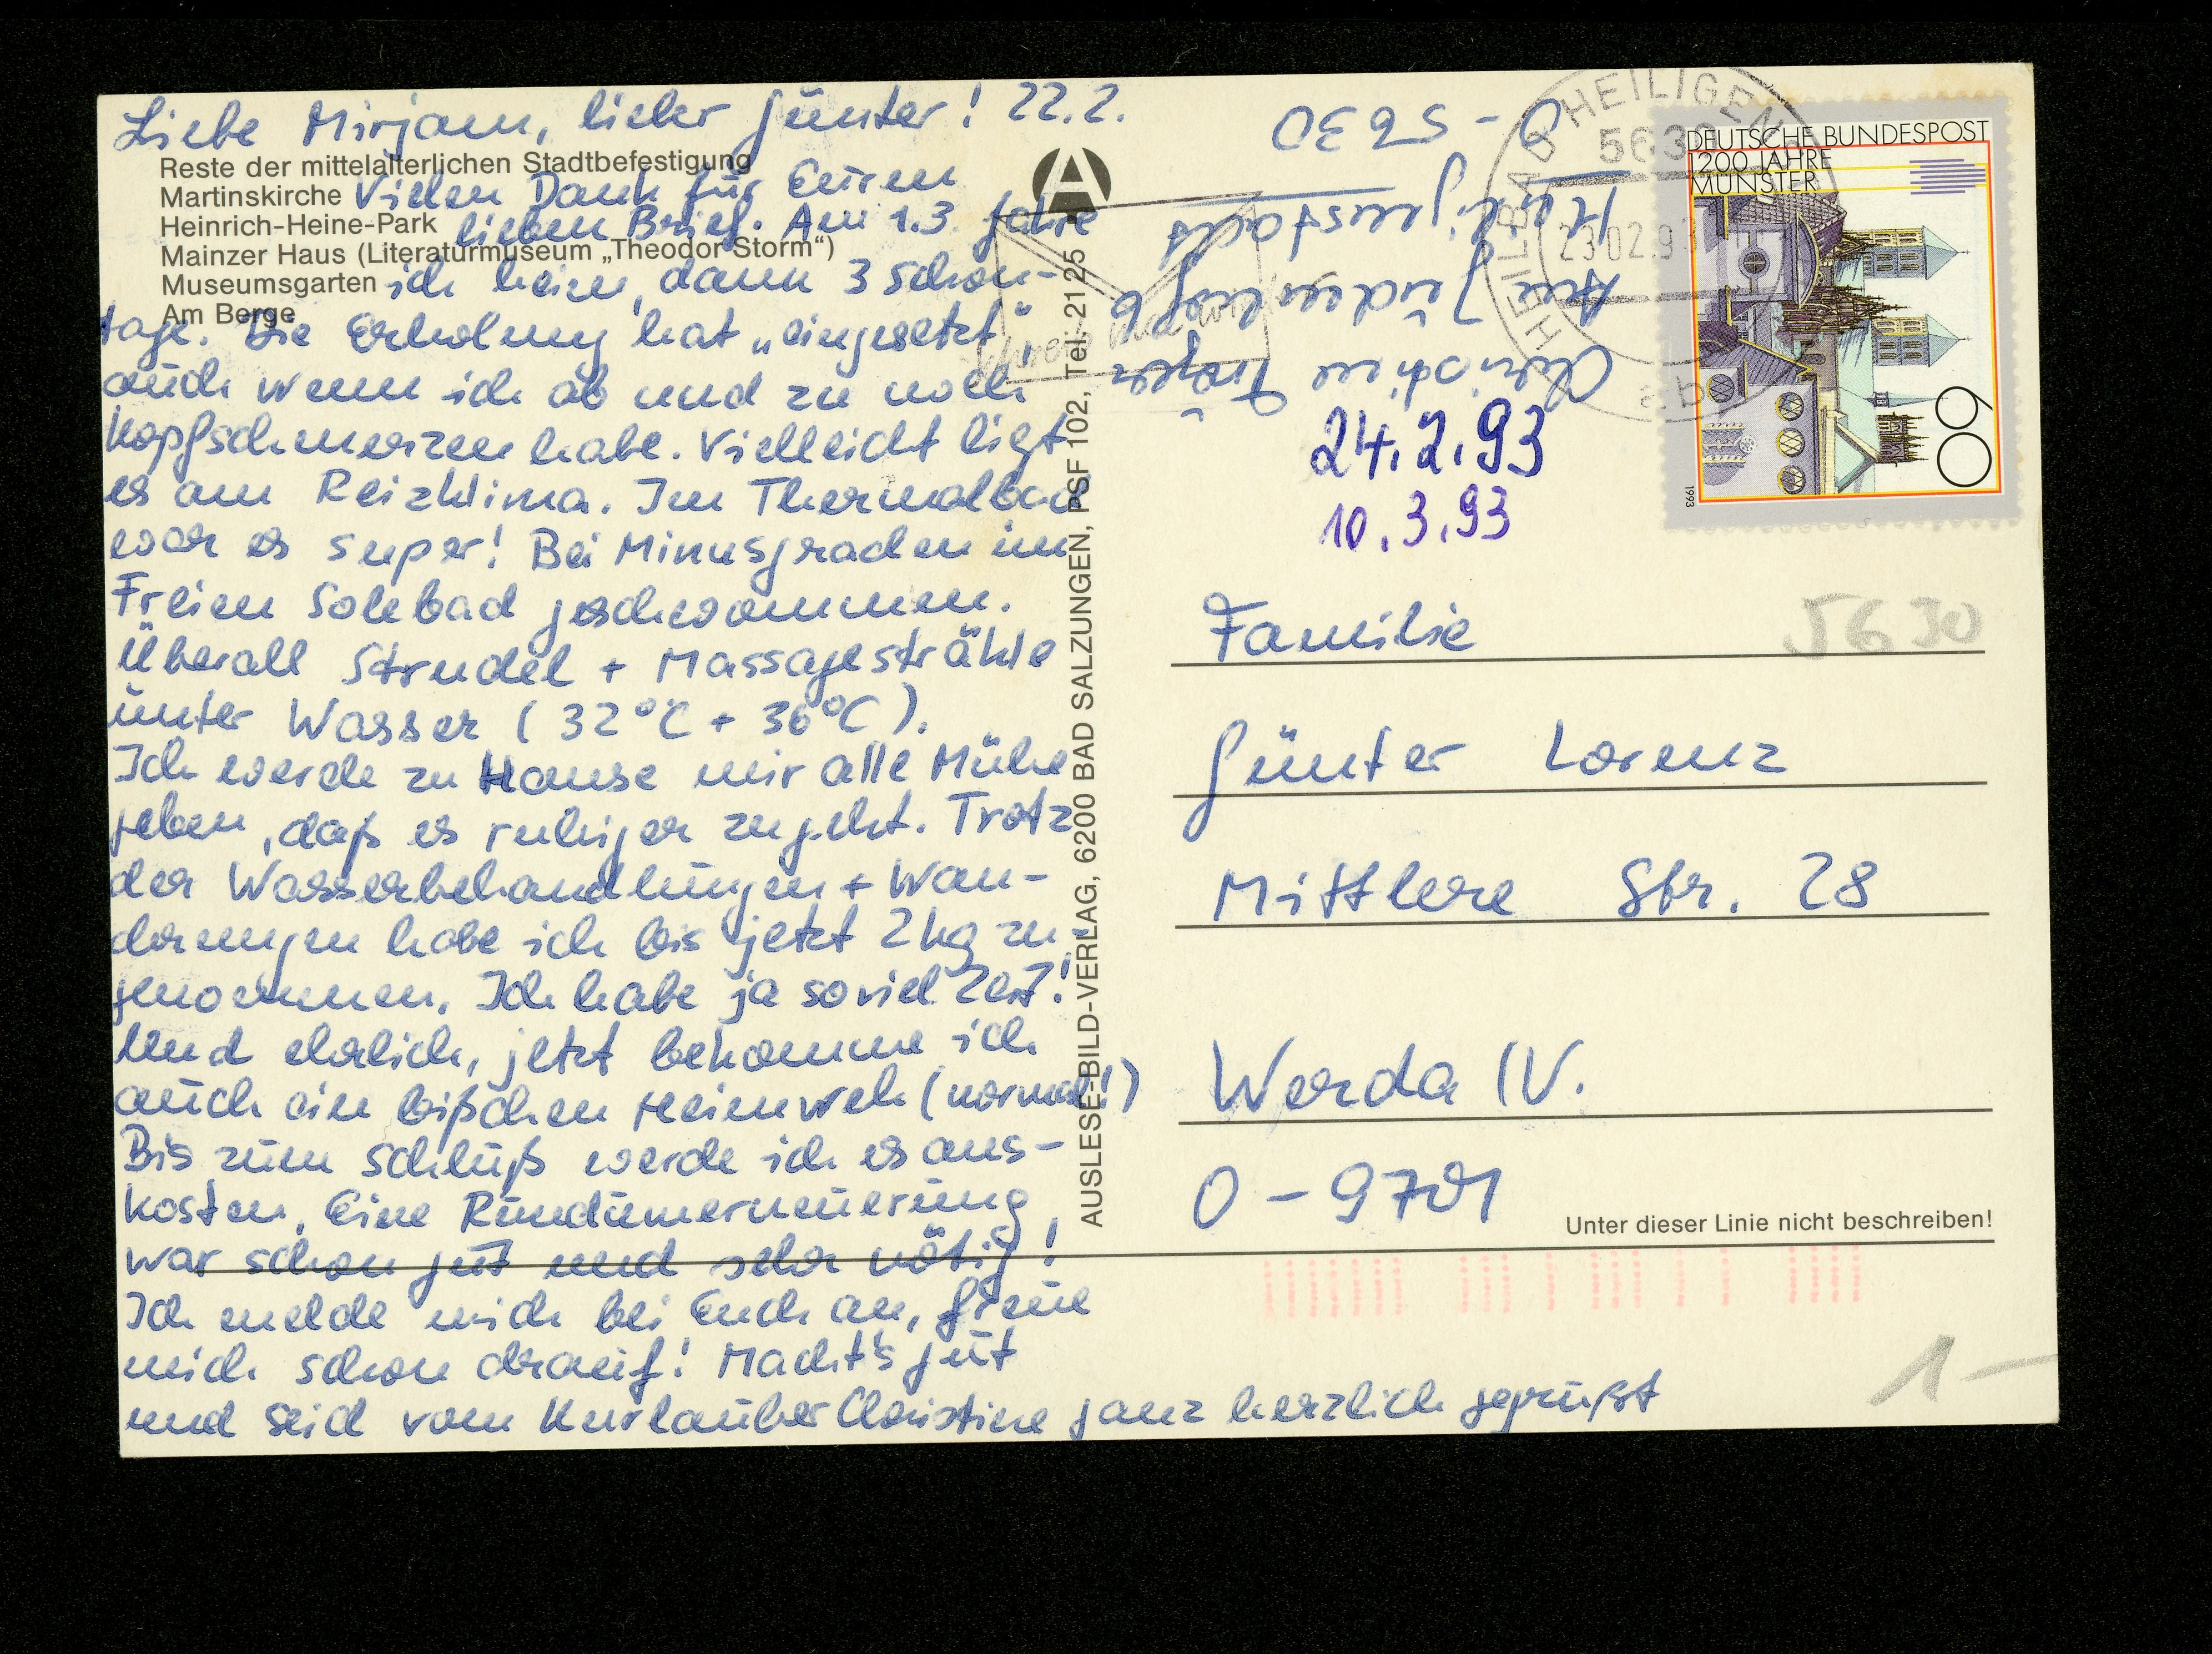 Liebe Mirjam, lieber Günter! 22.2.
Reste der mittelalterlichen Stadtbefestigung
Martinskirche
Heinrich-Heine-Park
Mainzer Haus (Literaturmuseum „Theodor Storm“)
Museumsgarten
Am Berge
Vielen Dank für Euren
lieben Brief. Am 1.3. fahre
ich heim, dann 3 Schon-
tage. Die Erholung hat „eingesetzt“,
auch wenn ich ab und zu noch
Kopfschmerzen habe. Vielleicht ligt
es am Reizklima. Im Thermalbad
war es super! Bei Minusgraden im
Freien Solebad geschwommen.
Überall Strudel + Massagestrahle
unter Wasser (32°C + 36°C).
Ich werde zu Hause mir alle Mühe
geben, daß es ruhiger zugeht. Trotz
der Wasserbehandlungen + Wan-
derungen habe ich bis jetzt 2 kg zu-
genommen. Ich habe ja soviel Zeit!
Und ehrlich, jetzt bekomme ich
auch ein bißchen Heimweh (normal!)
Bis zum Schluß werde ich es aus-
kosten. Eine Rundumerneuerung
war schon gut und sehr nötig!
Ich melde mich bei Euch an, freue
mich schon drauf! Macht's gut
und seid vom Kurlauber Christine ganz herzlich gegrüßt
AUSLESE-BILD-VERLAG, 6200 BAD SALZUNGEN, PSF 102, Tel. 2125
Am Jüdenhof 6
Heiligenstadt
O-5630
HEILBAD HEILIGEN
5630
23.02.9
DEUTSCHE BUNDESPOST
1200 JAHRE
MÜNSTER
60
1993
24.2.93
10.3.93
5630
Familie
Günter Lorenz
Mittlere Str. 28
Werda /V.
O-9701
Unter dieser Linie nicht beschreiben!
1-